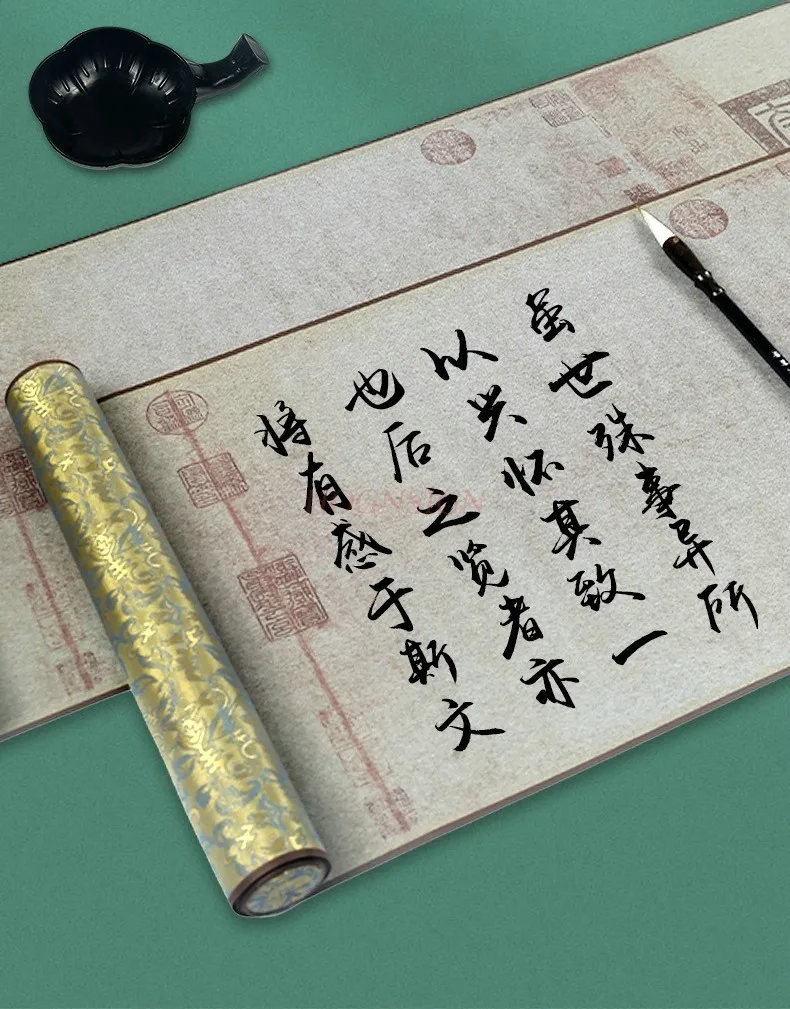 虽世殊事异所
以兴怀其致一
也后之览者亦
将有感于斯文